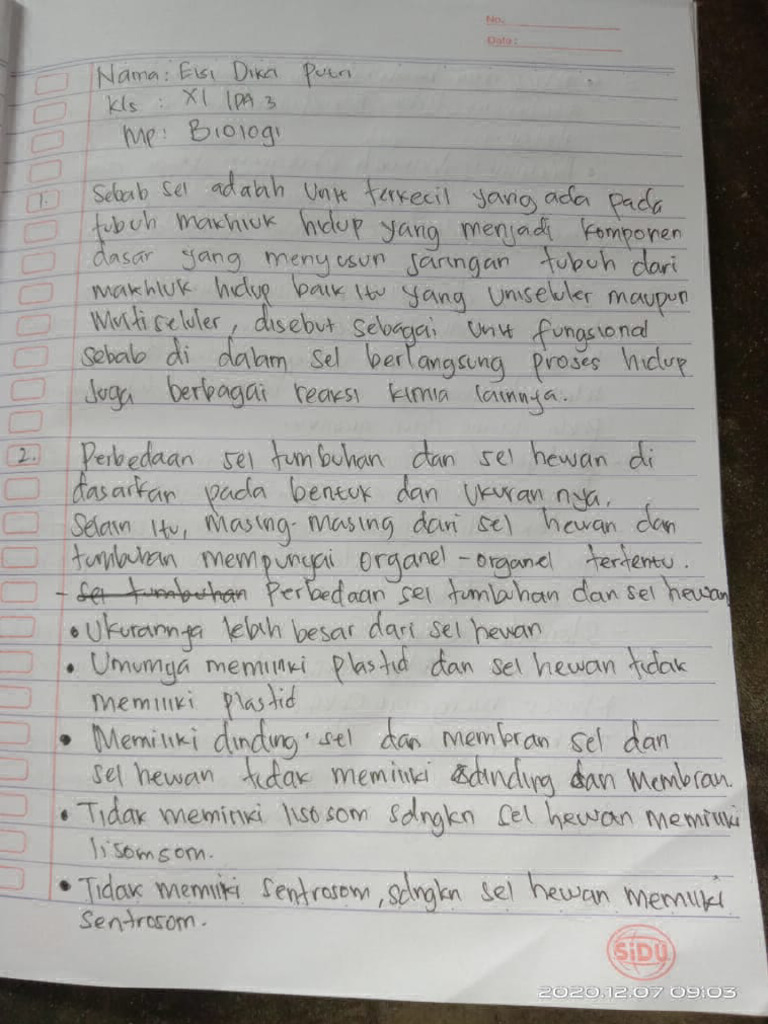 No.
Date:
Nama: Elsi Dika Putri
Kls : XI IPA 3
Mp: Biologi
1. Sebab sel adalah Unit terkecil yang ada pada
tubuh makhluk hidup yang menjadi komponen
dasar yang menyusun jaringan tubuh dari
makhluk hidup baik itu yang uniseluler maupun
Multiseluler, disebut sebagai unit fungsional
sebab di dalam sel berlangsung proses hidup
Juga berbagai reaksi kimia lainnya.
2. Perbedaan sel tumbuhan dan sel hewan di
dasarkan pada bentuk dan Ukuran nya.
Selain itu, masing-masing dari sel hewan dan
tumbuhan mempunyai organel-organel tertentu.
- Sel tumbuhan Perbedaan sel tumbuhan dan sel hewan
• Ukurannya lebih besar dari sel hewan
• Umumya memiliki plastid dan sel hewan tidak
memiliki plastid
• Memiliki dinding sel dan membran sel dan
sel hewan tidak memiliki dinding dan membran.
• Tidak memiliki lisosom sdngkn sel hewan memiliki
lisomsom.
• Tidak memiliki sentrosom, sdngkn sel hewan memiliki
sentrosom.
SiDU
2020.12.07 09:03